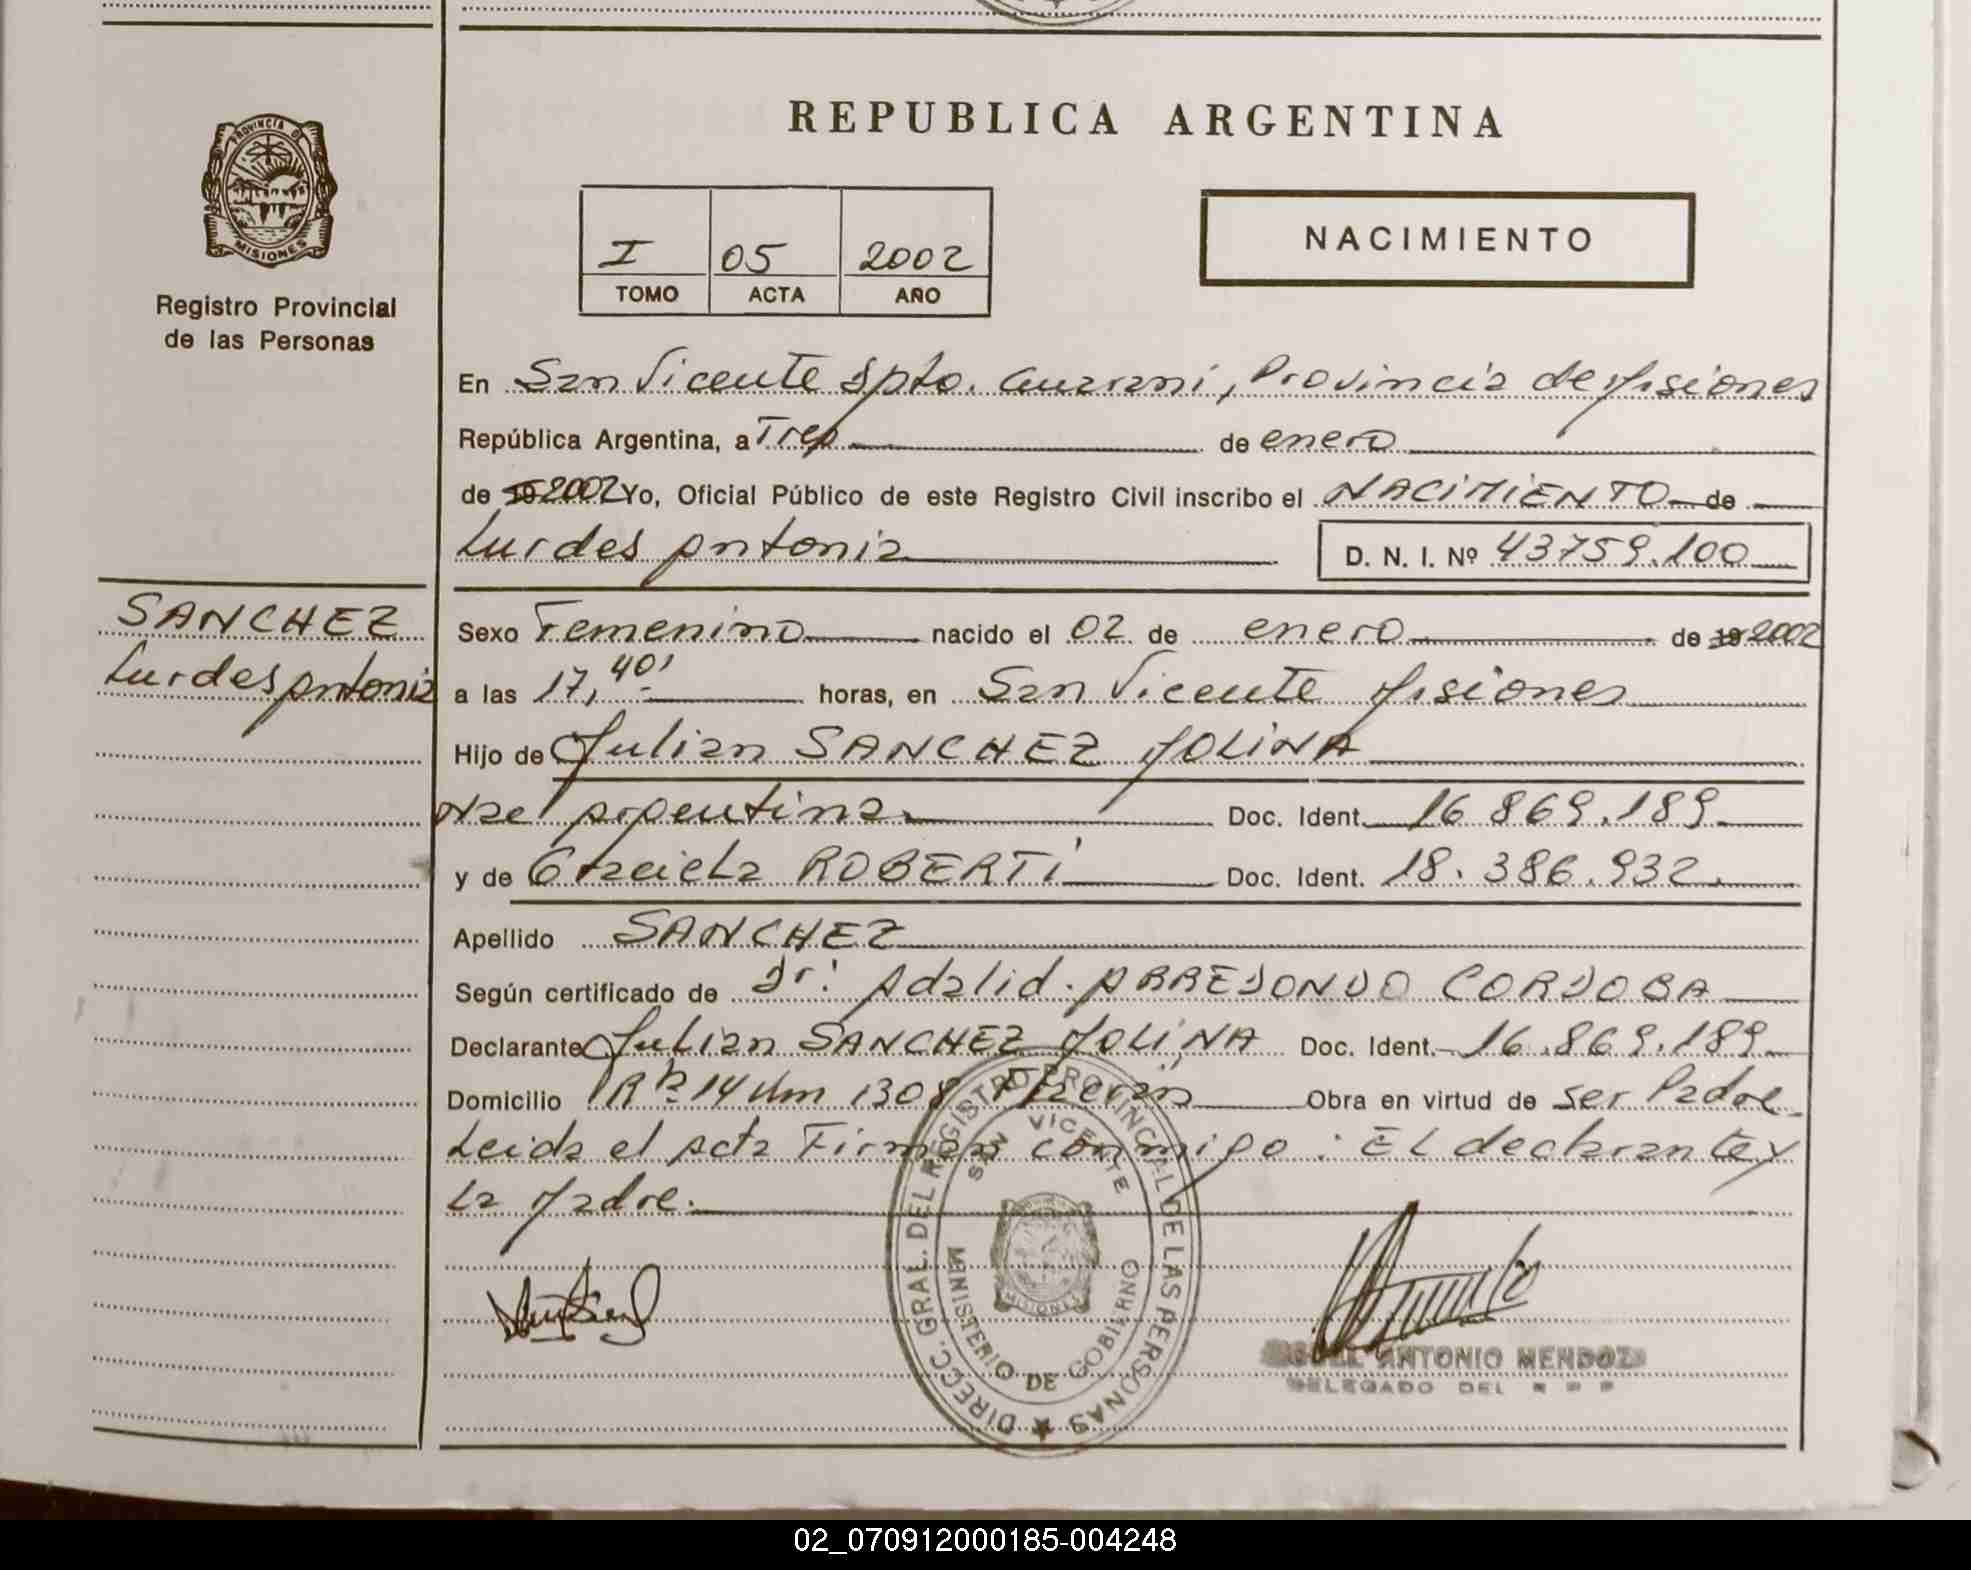 REPUBLICA ARGENTINA
PROVINCIA DE
MISIONES
Registro Provincial
de las Personas
I 05 2002
TOMO ACTA AÑO
NACIMIENTO
En San Vicente Dpto. Guarani, Provincia de Misiones
República Argentina, a Tres de enero
de 19 2002 Yo, Oficial Público de este Registro Civil inscribo el NACIMIENTO de
Lurdes Antonia D. N. I. Nº 43759.100
SANCHEZ
Lurdes Antonia
Sexo Femenino nacido el 02 de enero de 19 2002
a las 17,40' horas, en San Vicente Misiones
Hijo de Julian SANCHEZ MOLINA
Nac Argentina Doc. Ident. 16.869.189
y de Graciela ROBERTI Doc. Ident. 18.386.932
Apellido SANCHEZ
Según certificado de Dr: Adalid. ARREDONDO CORDOBA
Declarante Julian SANCHEZ MOLINA Doc. Ident. 16.869.189
Domicilio 14 Km 1308 Obra en virtud de ser Padre
Leida el Acta Firman conmigo: El declarante y
La Madre.
DIRECC. GRAL. DEL REGISTRO PROVINCIAL DE LAS PERSONAS
SAN VICENTE
MISIONES
MINISTERIO DE GOBIERNO
ANTONIO MENDOZA
DELEGADO DEL R P P
02_070912000185-004248